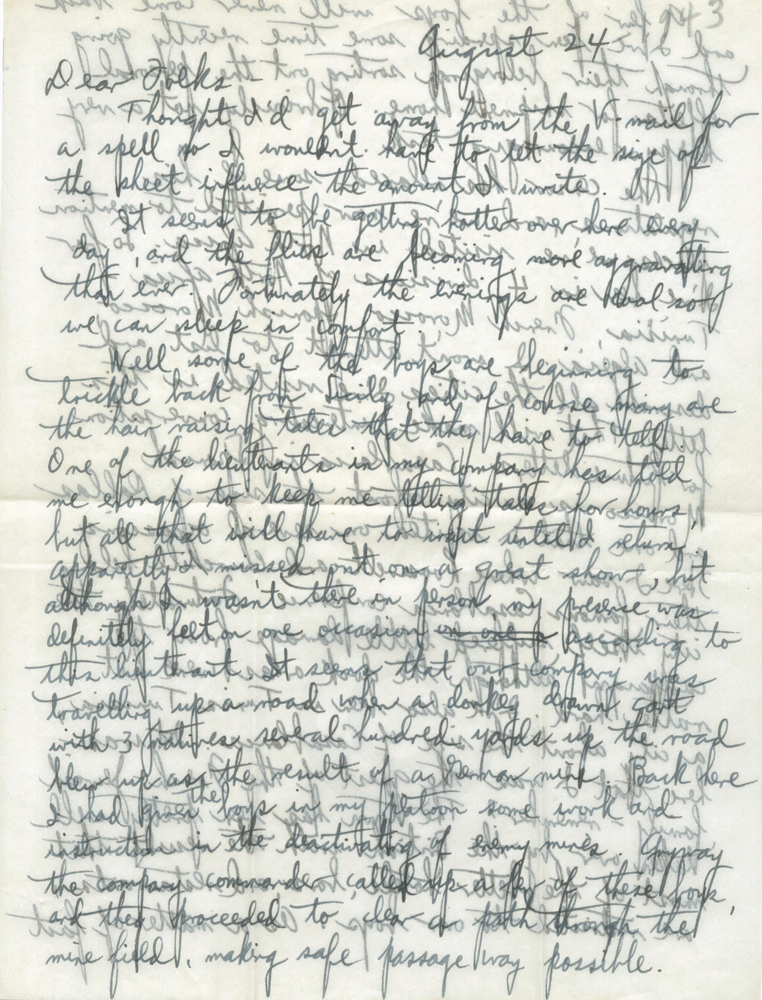 August 24
Dear Folks -
Thought I'd get away from the V-mail for
a spell so I wouldn't have to let the size of
the sheet influence the amount I write.
It seems to be getting hotter over here every
day, and the flies are becoming more aggravating
than ever. Fortunately the evenings are cool so
we can sleep in comfort.
Well some of the boys are beginning to
trickle back from Sicily, and of course many are
the hair raising tales that they have to tell.
One of the lieutenants in my company has told
me enough to keep me telling tales for hours,
but all that will have to wait until I return.
apparently I missed out on a great show, but
although I wasn't there in person my presence was
definitely felt on one occasion according to
this lieutenant. It seems that our company was
travelling up a road when a donkey drawn cart
with 3 natives several hundred yards up the road
blew up as the result of a German mine. Back here
I had given the boys in my platoon some work and
instruction in the deactivating of enemy mines. Anyway
the company commander called up a few of these boys,
and they proceeded to clear a path through the
mine field, making safe passage way possible.